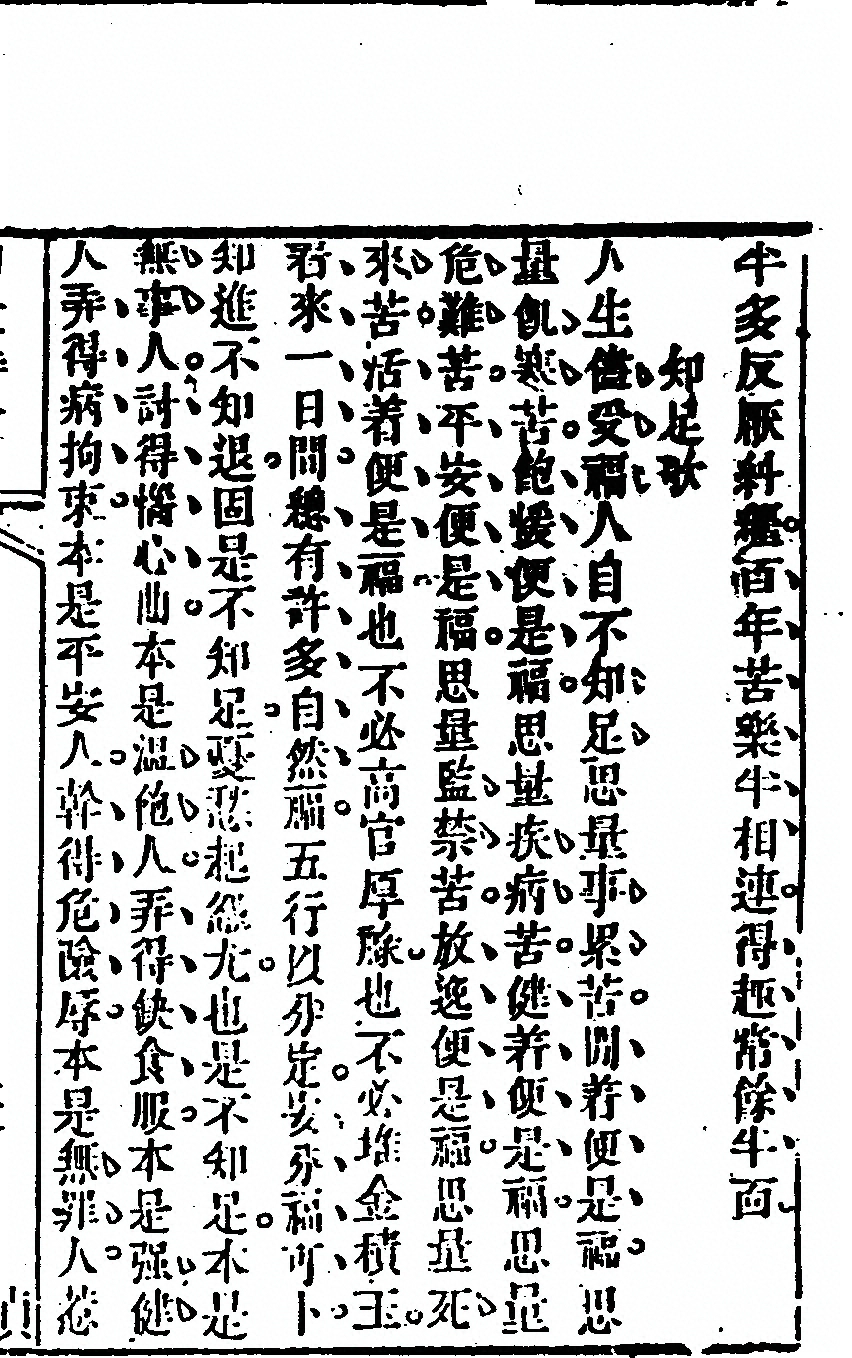 半多反厭糾纏百年苦樂半相連得趣常餘半面
知足歌
人生儘受福人自不知足思量事累苦閒着便是福思
量飢寒苦飽煖便是福思量疾病苦健着便是福思量
危難苦平安便是福思量監禁苦放逸便是福思量死
來苦活着便是福也不必高官厚祿也不必堆金積玉
看來一日間總有許多自然福五行以分定安分福可卜
知進不知退固是不知足憂愁起怨尤也是不知足本是
無事人討得惱心曲本是溫飽人弄得缺食服本是强健
人弄得病拘束本是平安人幹得危險辱本是無罪人惹